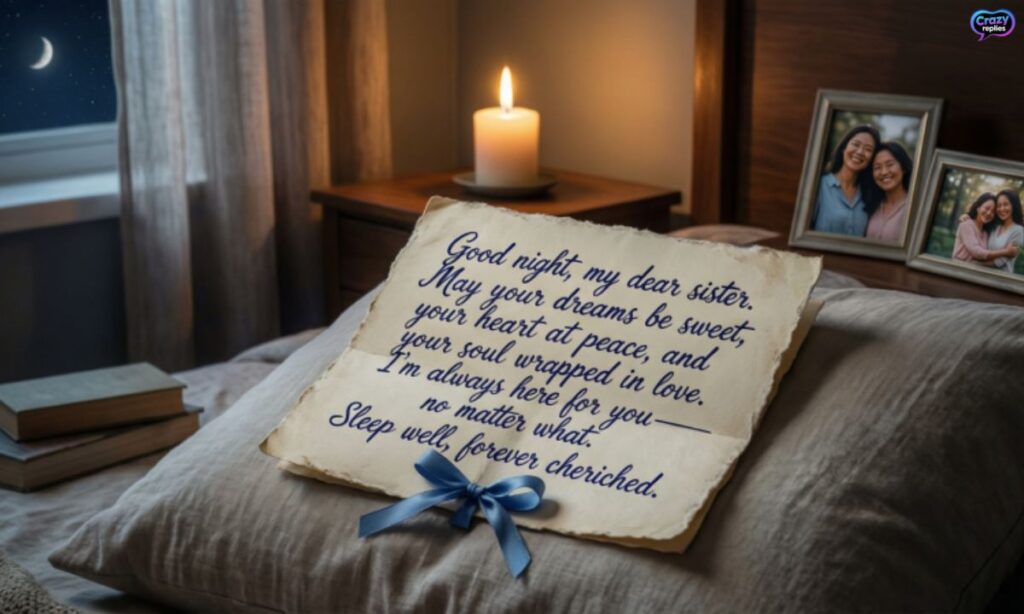 Crazy
replies
Good night, my dear sister.
May your dreams be sweet,
your heart at peace, and
your soul wrapped in love.
I'm always here for you——
no matter what.
Sleep well, forever cheriched.